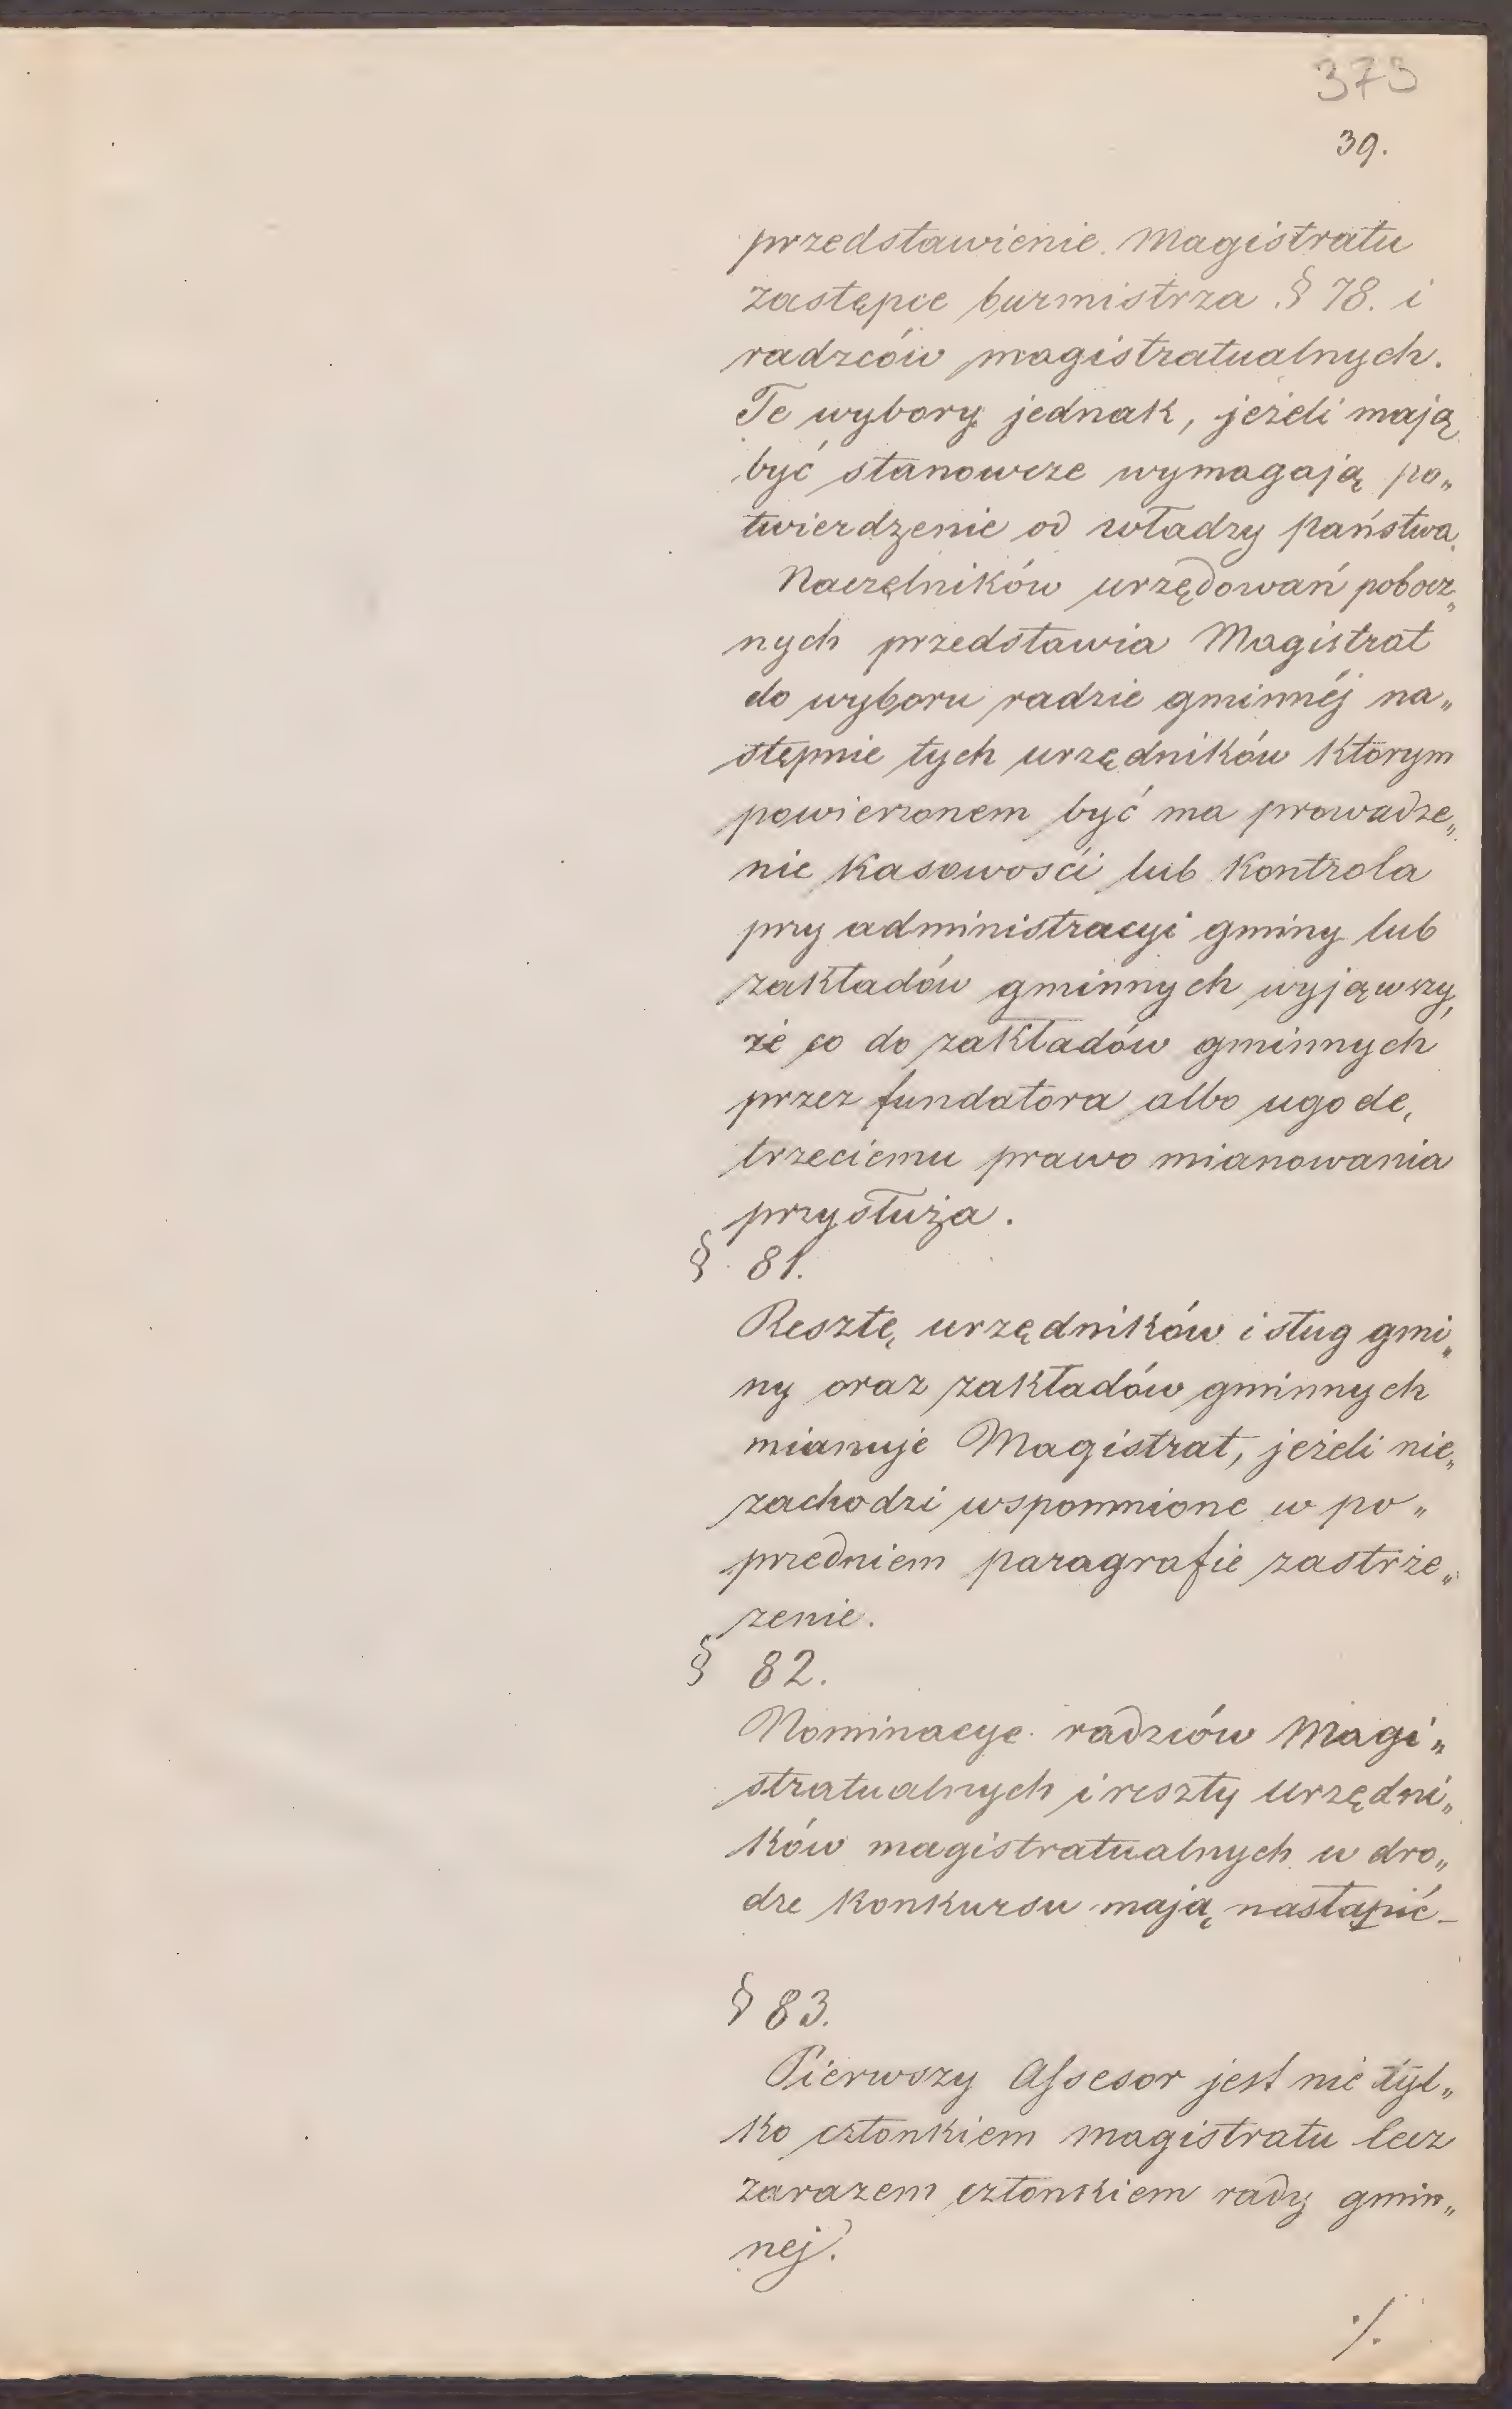 373
39.
przedstawienie Magistratu
zastępce burmistrza § 78. i
radzców magistratualnych.
Te wybory jednak, jeżeli mają
być stanowcze wymagają po„
twierdzenie od władzy państwa.
Naczelników urzędowań pobocz„
nych przedstawia Magistrat
do wyboru radzie gminnéj na„
stępnie tych urzędników ktorym
powierzonem być ma prowadze„
nie kasowości lub kontrola
przy administracyi gminy lub
zakładów gminnych wyjąwszy,
że co do zakładów gminnych
przez fundatora albo ugodę,
trzeciemu prawo mianowania
przysłuża.
§ 81.
Resztę urzędników i sług gmi„
ny oraz zakładów gminnych
mianuje Magistrat, jeżeli nie„
zachodzi wspomnione w po„
przedniem paragrafie zastrże„
zenie.
§ 82.
Nominacye radzców Magi„
stratualnych i reszty urzędni„
ków magistratualnych w dro„
dze konkursu mają nastąpić_
§ 83.
Pierwszy Assesor jest nie tyl„
ko członkiem magistratu lecz
zarazem członkiem rady gmin„
nej.
./.